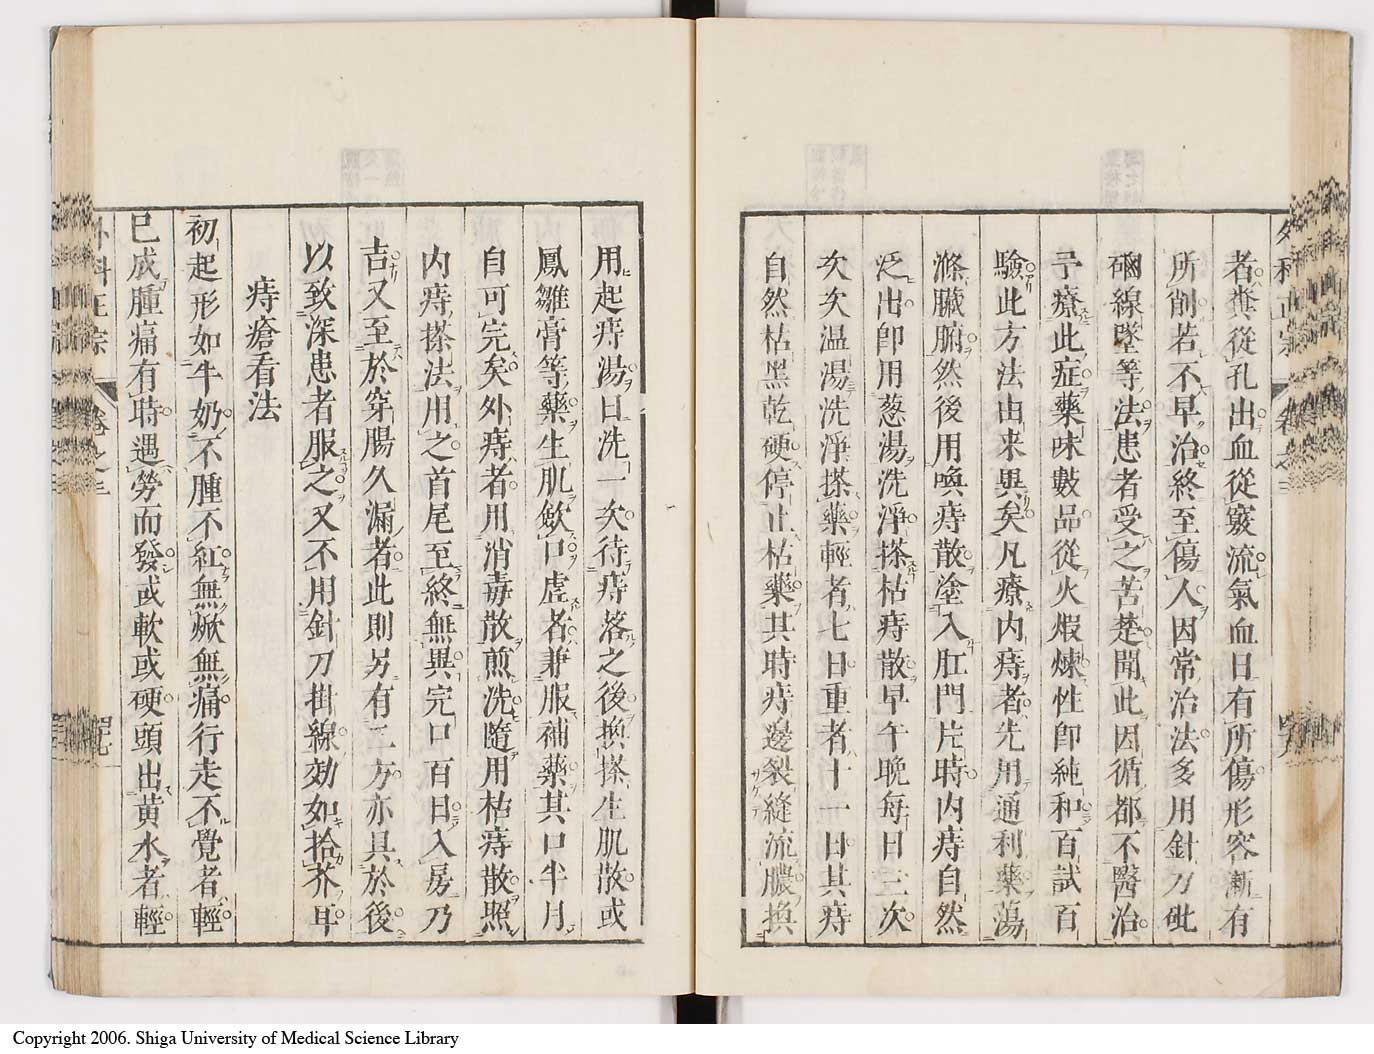 者糞從孔出血從竅流氣血日有所傷形容漸有
所削若不早治終至傷人因常治法多用針刀砒
硇線墜等法患者受之苦楚聞此因循都不醫治
予療此症藥味數品從火煆煉性即純和百試百
驗此方法由来異矣凡療内痔者先用通利藥蕩
滌臟腑然後用喚痔散塗入肛門片時内痔自然
泛出即用葱湯洗淨搽枯痔散早午晚每日三次
次次温湯洗淨搽藥輕者七日重者十一日其痔
自然枯黑乾硬停止枯藥其時痔邊裂縫流膿換
用起痔湯日洗一次待痔落之後換搽生肌散或
鳳雛膏等藥生肌歛口虚者兼服補藥其口半月
自可完矣外痔者用消毒散煎洗隨用枯痔散照
内痔搽法用之首尾至終無異完口百日入房乃
吉又至於穿腸久漏者此則另有二方亦具於後
以致深患者服之又不用針刀掛線効如拾芥耳
痔瘡看法
初起形如牛奶不腫不紅無焮無痛行走不覺者輕
已成腫痛有時遇勞而發或軟或硬頭出黄水者輕
外科正宗 卷之三
Copyright 2006. Shiga University of Medical Science Library